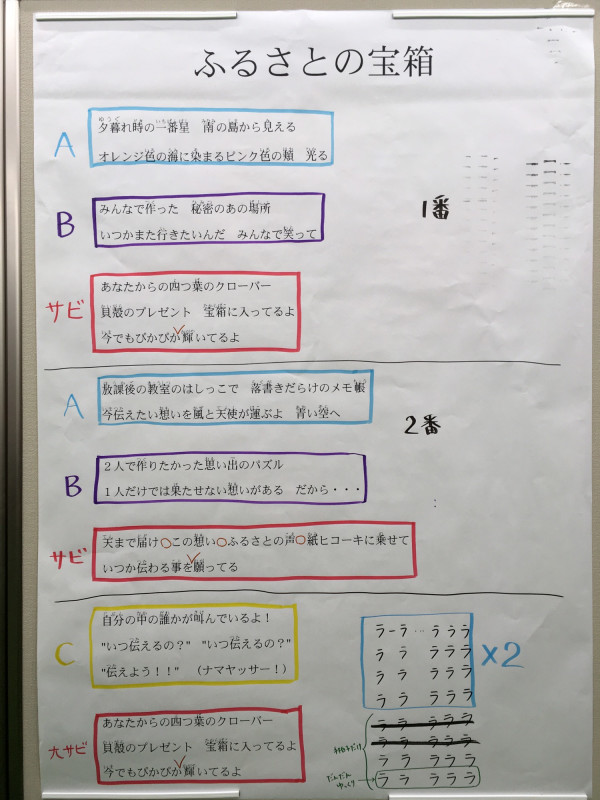 ふるさとの宝箱
A
夕暮れ時の一番星　南の島から見える
オレンジ色の海に染まるピンク色の頬　光る
B
みんなで作った　秘密のあの場所
いつかまた行きたいんだ　みんなで笑って
1番
サビ
あなたからの四つ葉のクローバー
貝殻のプレゼント　宝箱に入ってるよ
今でもぴかぴか輝いてるよ
A
放課後の教室のはしっこで　落書きだらけのメモ帳
今伝えたい想いを風と天使が運ぶよ　青い空へ
2番
B
２人で作りたかった思い出のパズル
１人だけでは果たせない想いがある　だから・・・
サビ
天まで届け○この想い○ふるさとの声○紙ヒコーキに乗せて
いつか伝わる事を願ってる
C
自分の中の誰かが叫んでいるよ！
"いつ伝えるの？"　"いつ伝えるの？"
"伝えよう！！"　（ナマヤッサー！）
大サビ
あなたからの四つ葉のクローバー
貝殻のプレゼント　宝箱に入ってるよ
今でもぴかぴか輝いてるよ
ラーラ…ラララ
ララ　ラララ
ララ　ラララ
ララ　ラララ
×2
ララ　ラララ
ララ　ラララ
ララ　ラララ
だんだんゆっくり
ララ　ラララ